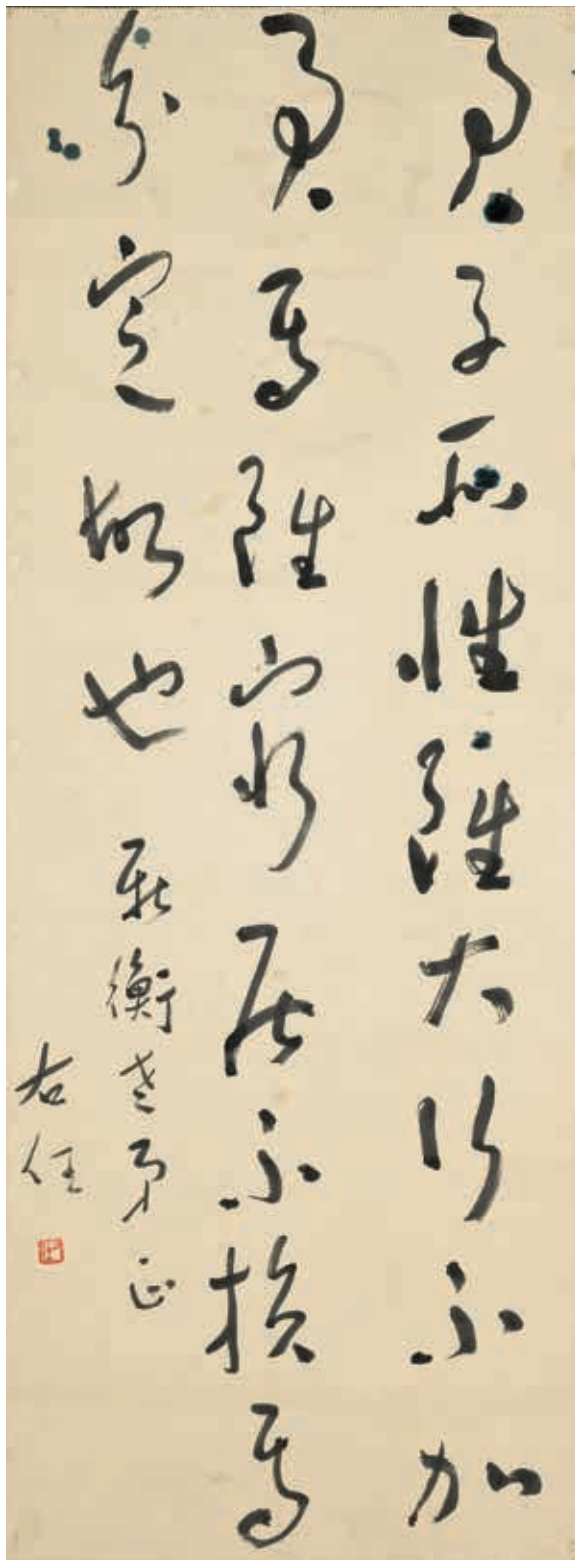 君子所性雖大行不加
焉雖窮居不損焉
分定故也 衡老弟正
右任